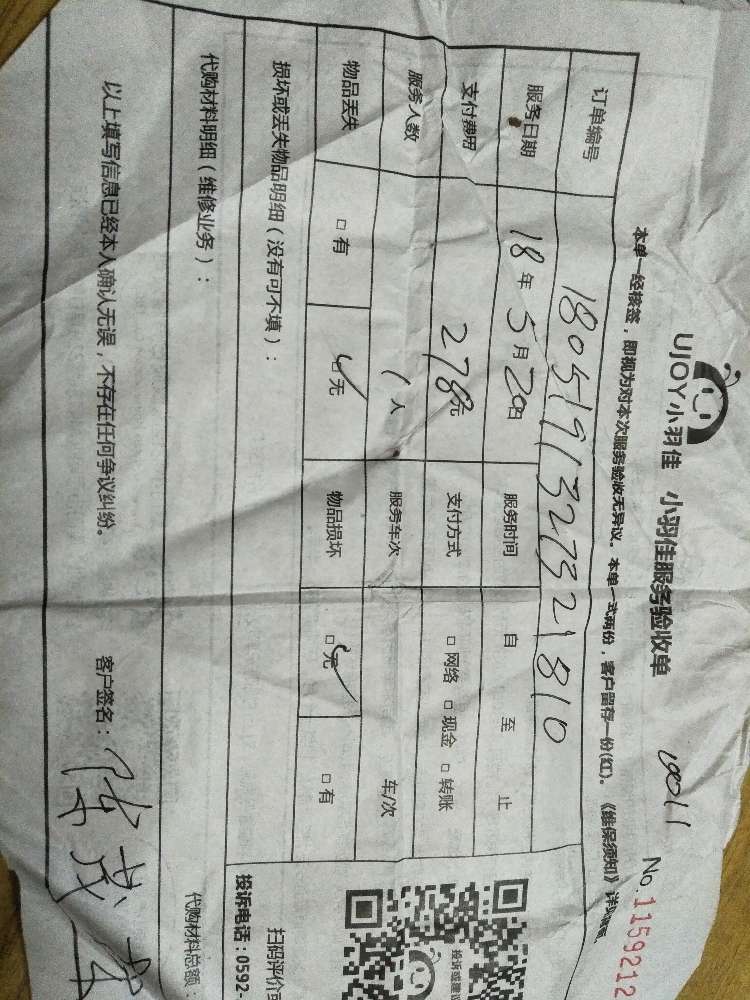 UJOY小羽佳 小羽佳服务验收单
No.1159212
本单一经核签，即视为对本次服务验收无异议。本单一式两份，客户留存一份(红)。《维保须知》详见
订单编号 1805191327321810
服务日期 18年5月20日 服务时间 自 至 止
支付费用 278元 支付方式 □网络 □现金 □转账
服务人数 1人 服务车次 车/次
物品丢失 □有 □无 物品损坏 □无 □有
损坏或丢失物品明细（没有可不填）：
代购材料明细（维修业务）：
代购材料总额：
以上填写信息已经本人确认无误，不存在任何争议纠纷。 客户签名：
投诉或建议
扫码评价
投诉电话：0592-